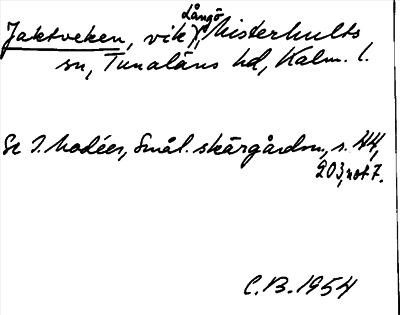 Långö
Jaktveken, vik), Misterhults
sn, Tunaläns hd, Kalm. l.
Se I. Modéer, Smål. skärgårdsn., s. 44,
203, not 7.
C.B. 1954